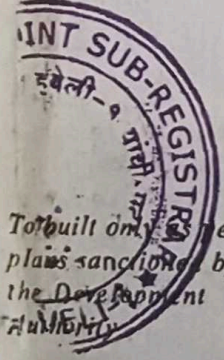 INT SUB-REGISTRA
हवेली-१
To built only as pe
plans sanctioned b
the Development
Authority